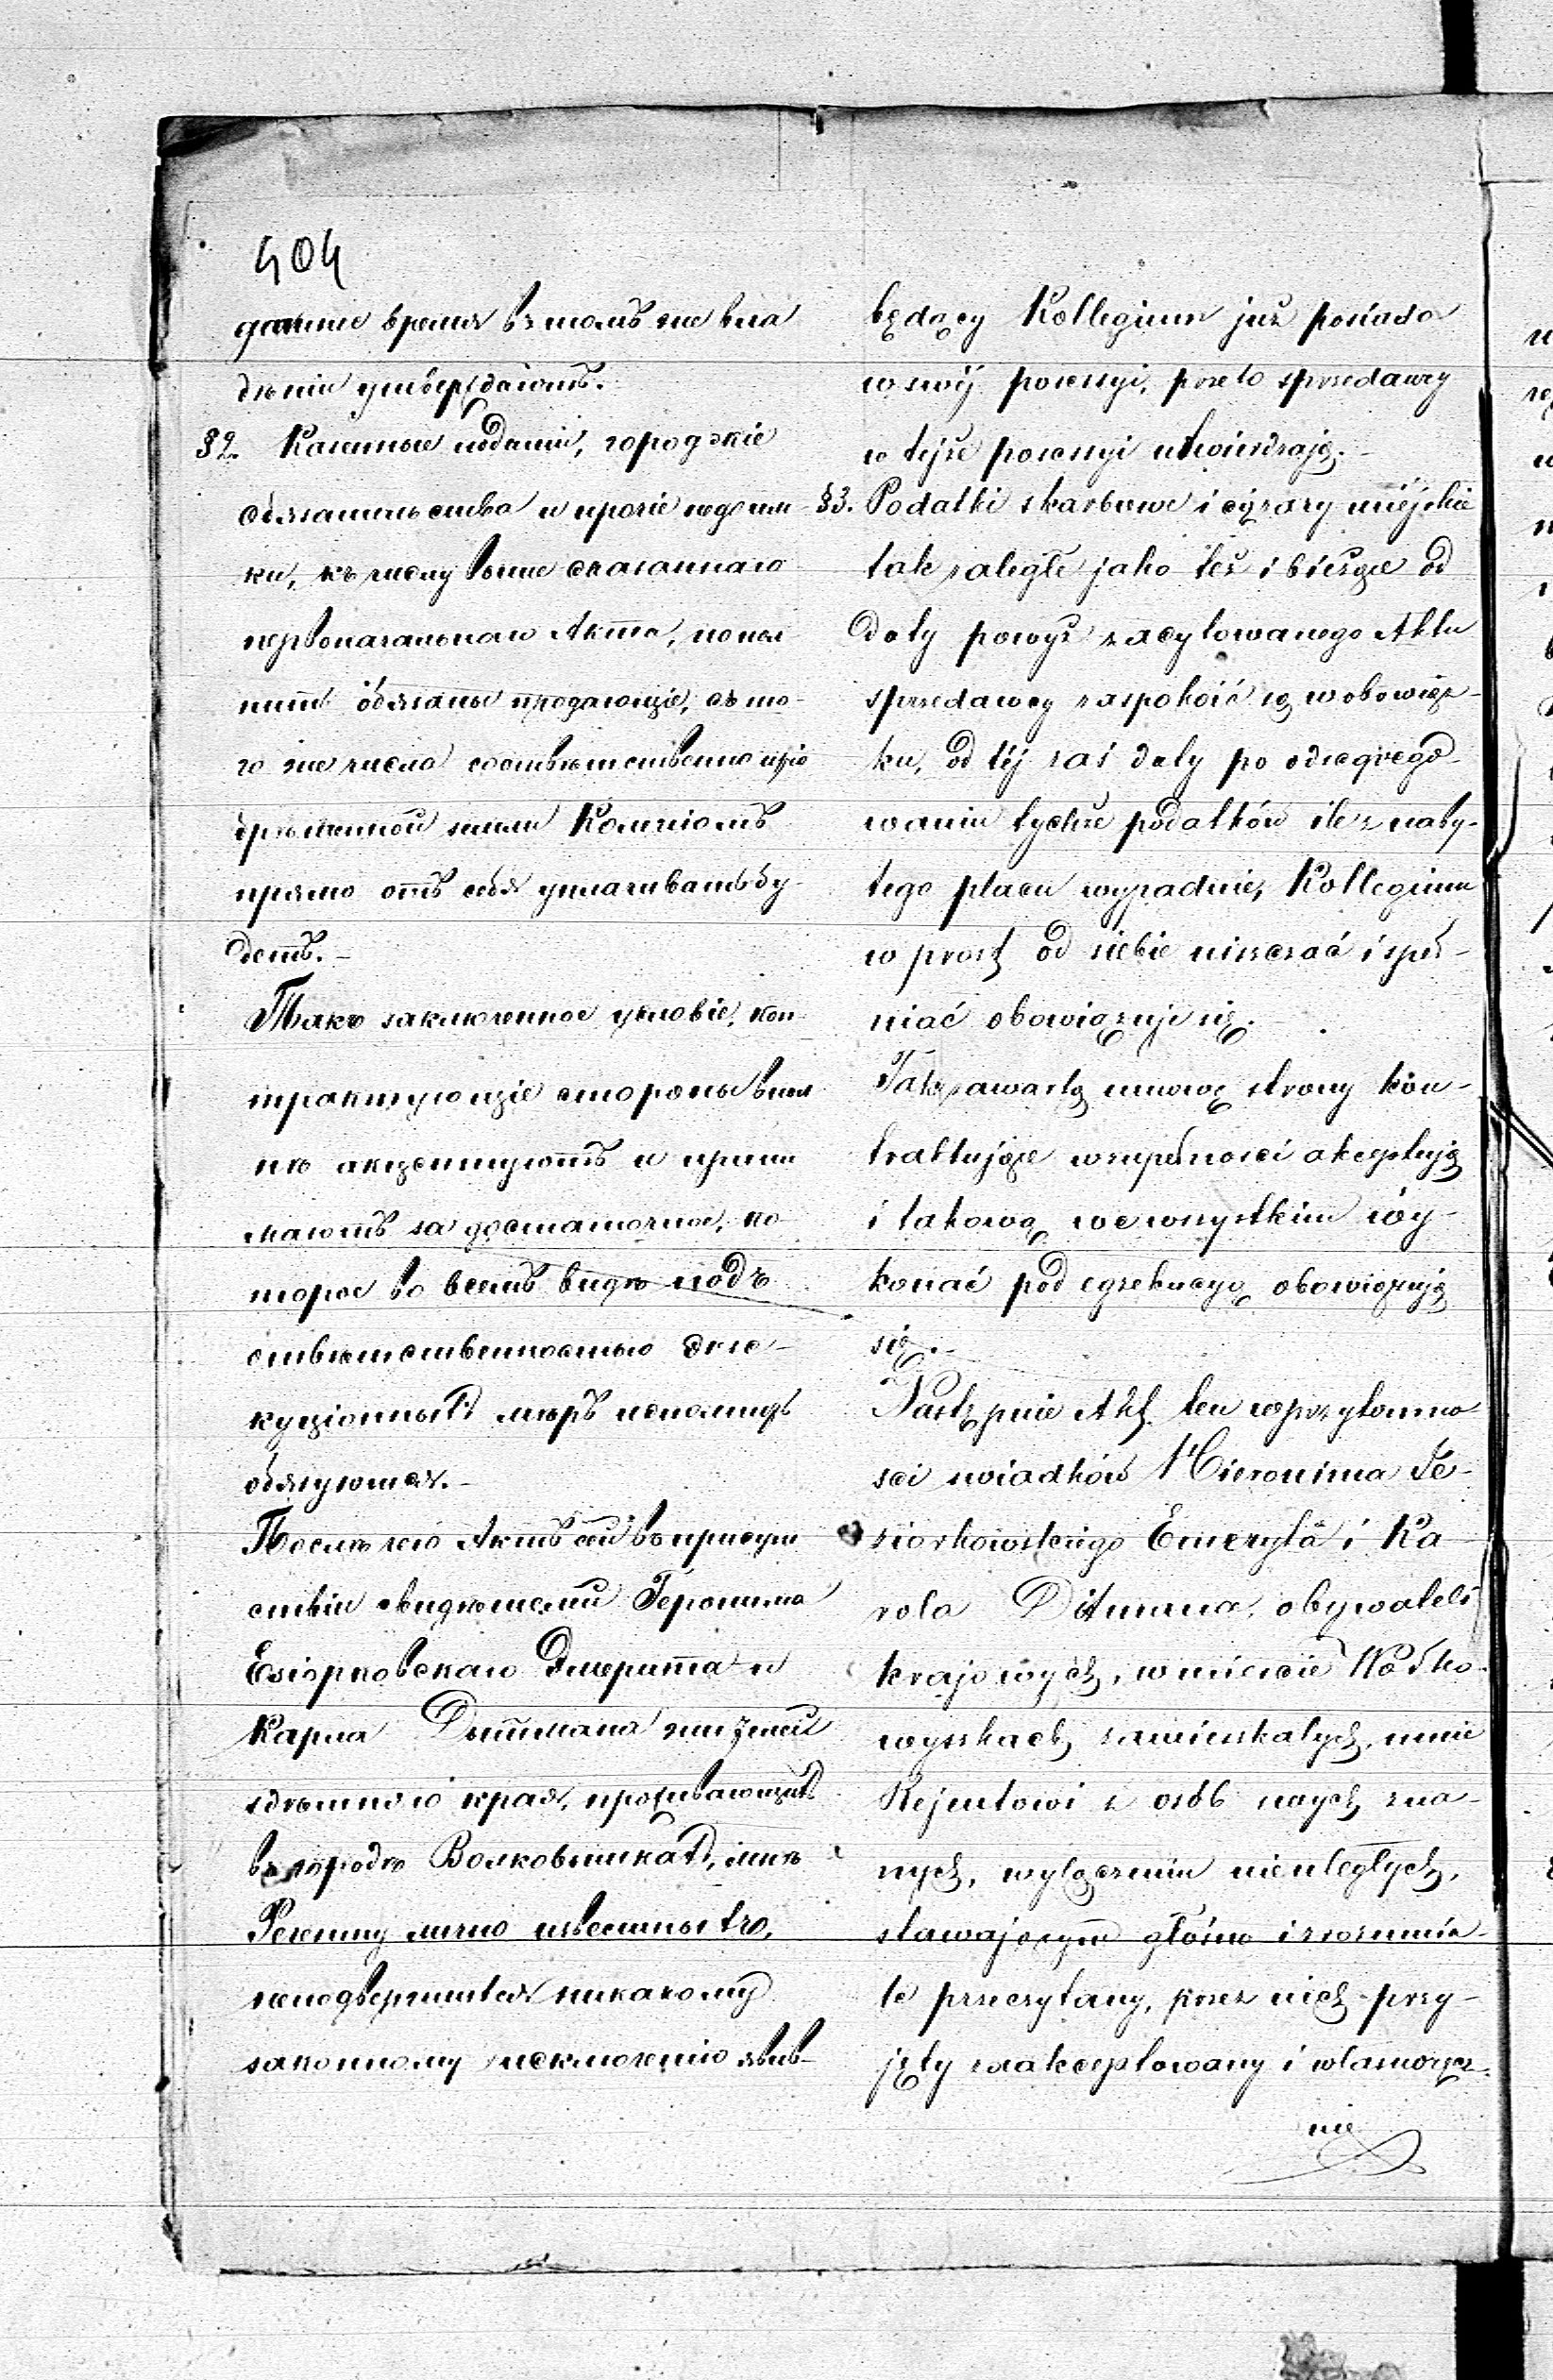 404
дашне время въ томъ же вла
дѣніи утверждаютъ.
§2. Казенные подати, городскіе
обязательства и прочіе недоим-
ки, къ числу выше сказаннаго
первоначальнаго Акта, попол
нить обязаны продающіе, съ то-
го же числа соотвѣтственно пріо
брѣтенной земли Коллегіумъ
прямо отъ себя уплачивать бу-
детъ.-
Такъ заключенное условіе, кон-
трактующіе стороны впол
нѣ акцептуютъ и прини
маютъ за достаточное, ко-
торое во всемъ видѣ подъ
отвѣтственностью экзе-
куціонныхъ мѣръ исполнить
обязуются.-
Послѣ чего Актъ сей въ присут
ствіи свидѣтелей Геронима
Езіорковскаго Эмерита и
Карла Дитмана жителей
здѣшняго края, проживающихъ
въ городѣ Волковышкахъ, мнѣ
Регенту лично извѣстныхъ,
неподвергшихся никакому
законному исключенію явив-
będący Kollegium już posiada
w swéj posessyi, przeto sprzedawcy
w tejże posessyi utwierdzają.-
§3. Podatki skarbowe i ciężary miéjskie
tak zaległe jako też i bieżące od
daty powyż zacytowanego Aktu
sprzedawcy zaspokoić są w obowiąz-
ku, od téj zaś daty po odseqrego-
waniu tychże podatków ile z naby-
tego placu wypadnie, Kollegium
wprost od siebie uiszczać i speł-
niać obowiązuje się.
Tak zawartą umowę strony kon-
traktujące w zupełności akceptują
i takową we wszystkim wy-
konać pod egzekucyą obowiązują
się.-
Następnie Akt ten w przytomno
sci swiadków Hieronima Je-
ziorkowskiego Emeryta i Ka
rola Ditmana, obywateli
krajowych, w mieście Wołko-
wyszkach zamieszkałych, mnie
Rejentowi z osób swych zna-
nych, wyłączeniu nieuległych,
stawającym głośno i zrozumia-
le przeczytany, przez nich przy-
jęty zaakceptowany i własnoręcz-
nie